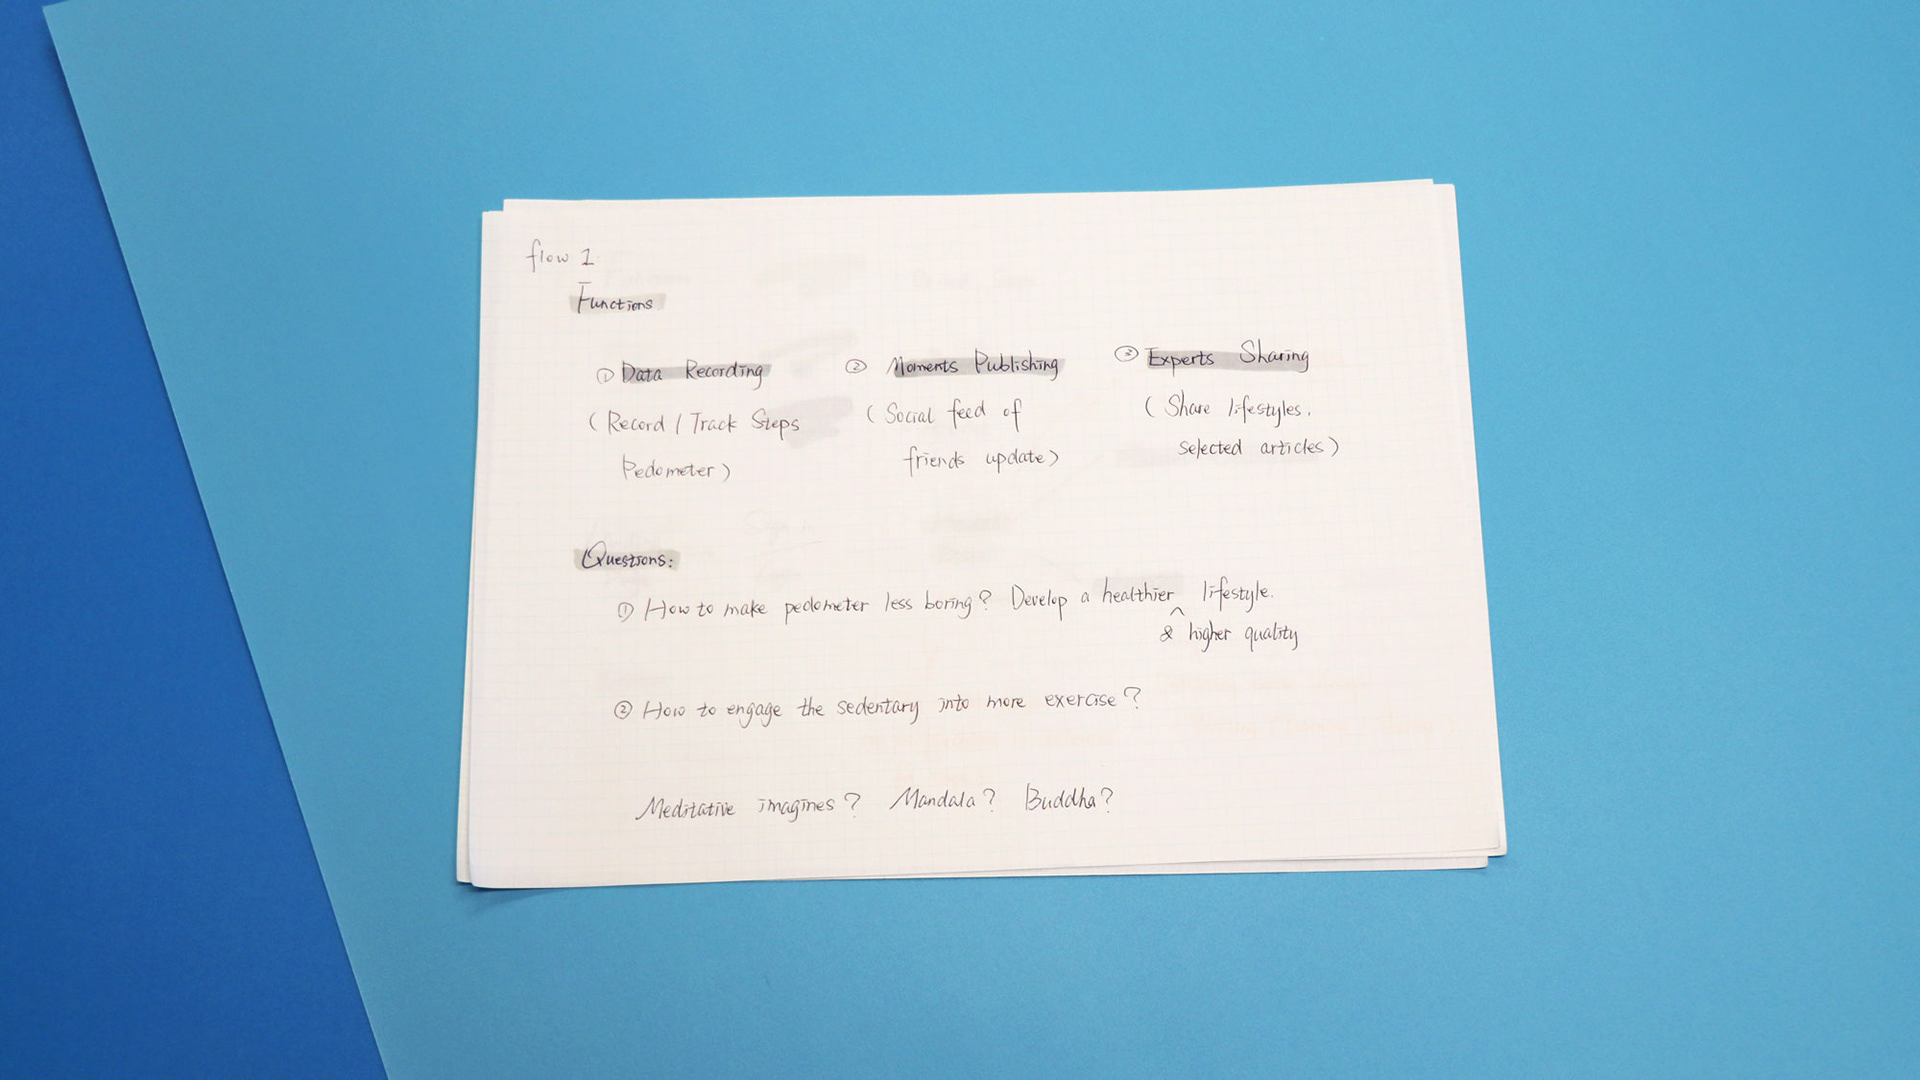 flow 1
Functions
① Data Recording
(Record / Track Steps
Pedometer)
② Moments Publishing
(Social feed of
friends update)
③ Experts Sharing
(Share lifestyles,
selected articles)
Questions:
① How to make pedometer less boring? Develop a healthier ^ lifestyle.
& higher quality
② How to engage the sedentary into more exercise?
Meditative imagines? Mandala? Buddha?